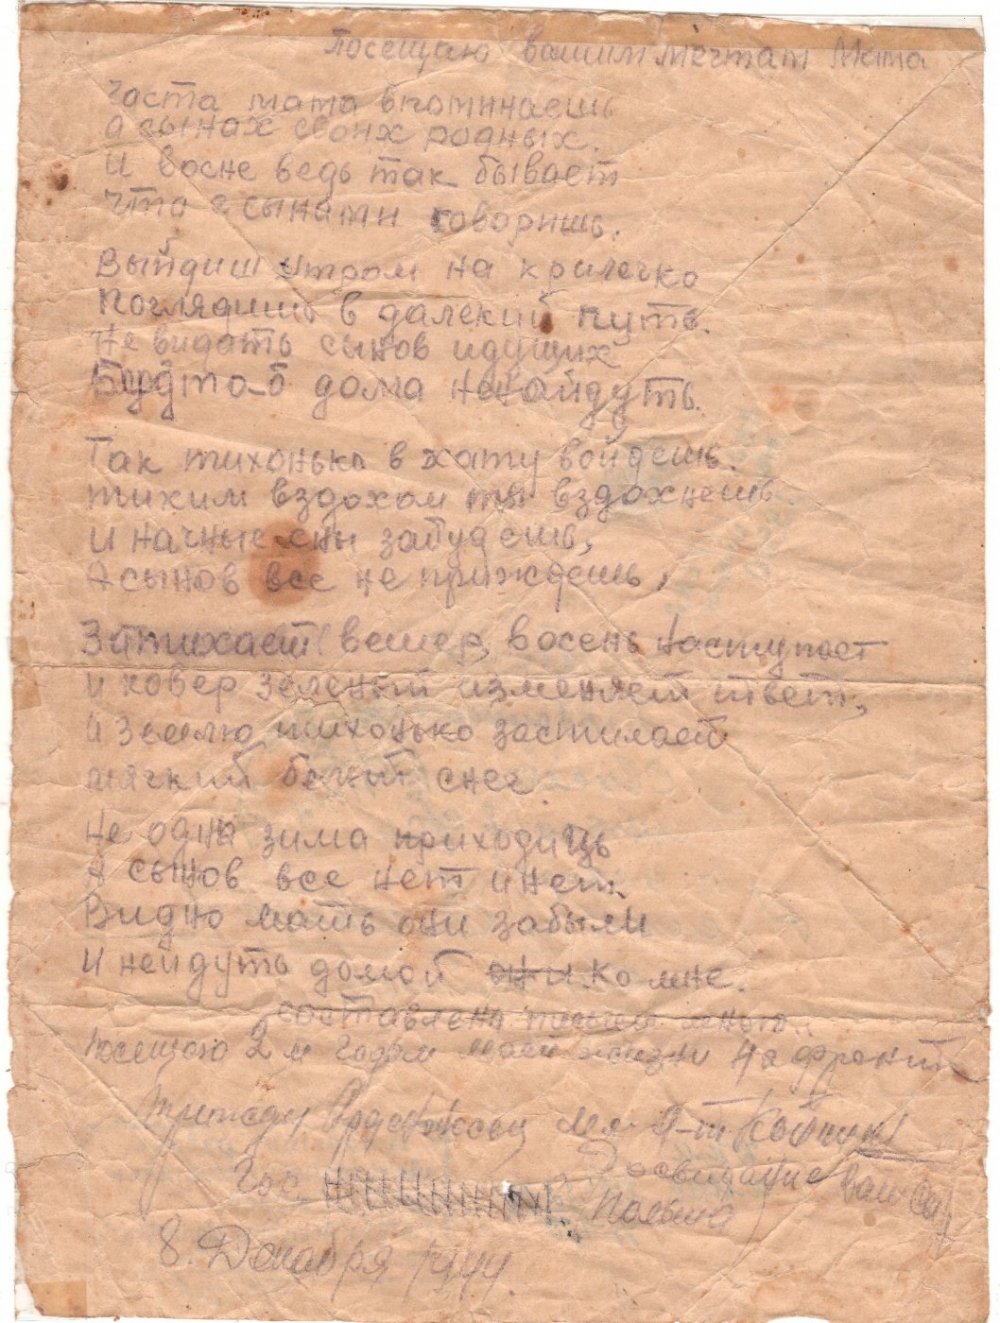 Посещаю вашим мечтам Мама
Часта мама впоминаешь
А сынах своих родных.
И восне ведь так бывает
Что с сынами говоришь.
Выйдиш утром на крилечко
Поглядишь в далекий путь.
Не видать сынов идущих
Будто-б дома ненайдуть.
Так тихонько в хату войдешь.
тихим вздохом ты вздохнешь
и начные сны забудешь,
А сынов все не прижделшь,
Затихает ветер, восень наступает
и ковер зеленый изменяет цвет,
и землю тихонько застилает
мягкий белый снег
Не одна зима приходить
А сынов все нет и нет.
Видно мать они забыли
И нейдуть домой они. Ко мне.
составлена мною.
посещаю 2м годам моей жизни на фронте
трижды Орденоносец
Досвидание ваш сын
Гос. Польша
8. Декабря 1944.